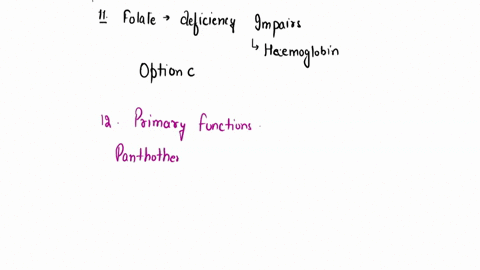 11. Folate → deficiency Impairs
↳ Haemoglobin
Option C
12. Primary functions.
Panthother